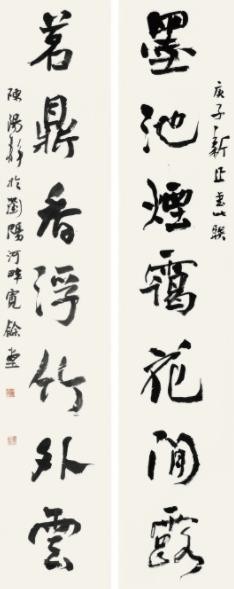 庚子新正書此聯
墨池煙靄花間露
茗鼎香浮竹外雲
陳陽靜於瀏陽河畔寬餘堂